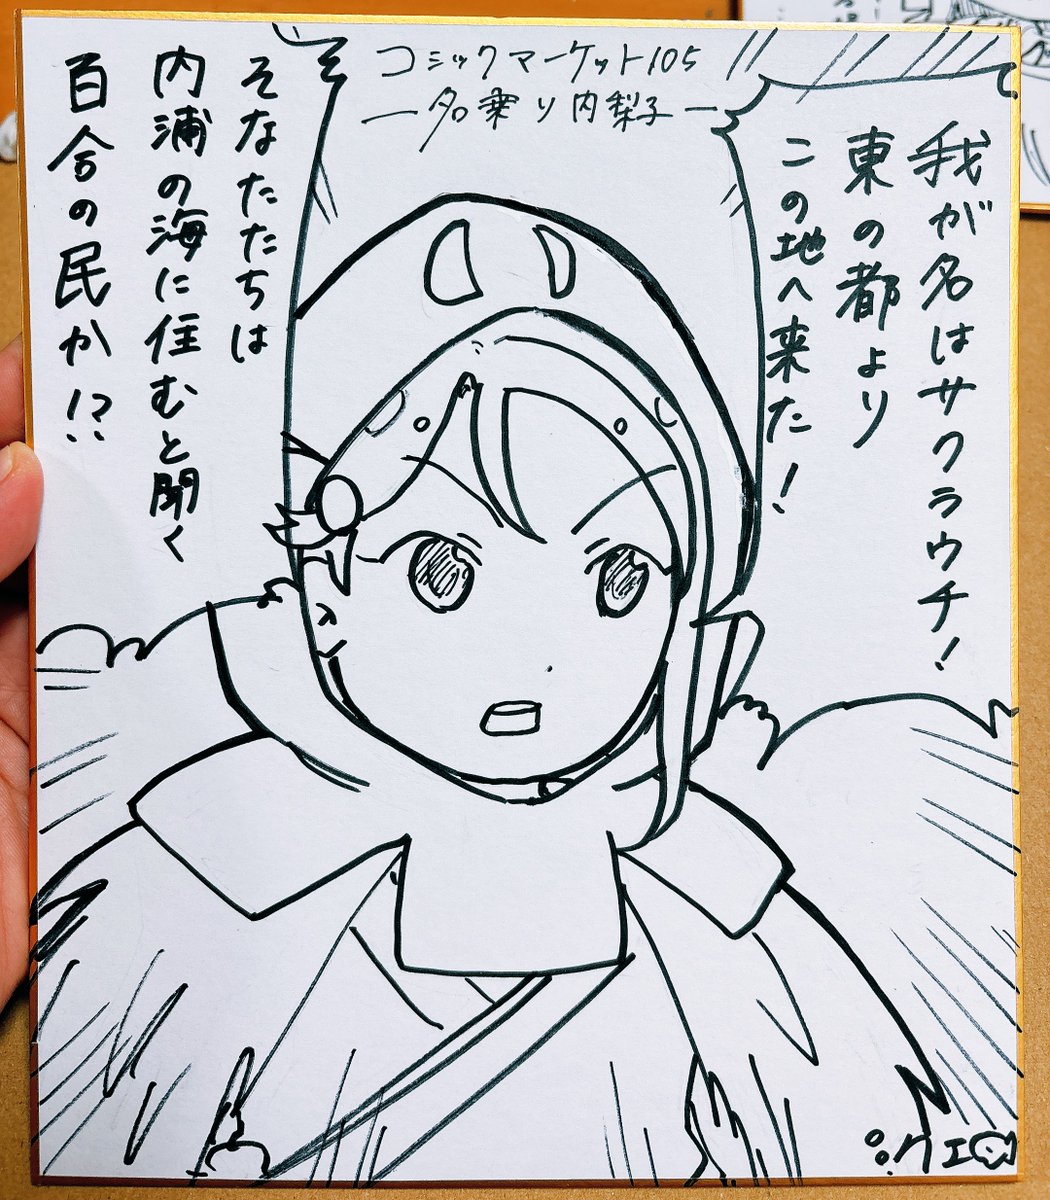 コミックマーケット105
―名乗り内梨子―
我が名はサクラウチ!
東の都より
この地へ来た!
そなたたちは
内浦の海に住むと聞く
百合の民か!?